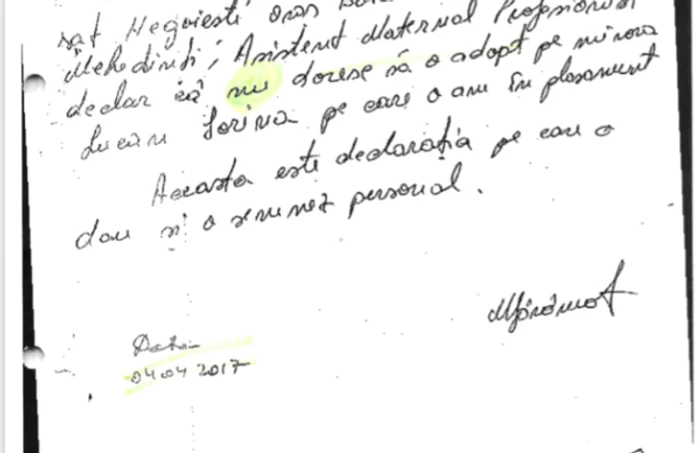 sat Negoiești oraș
Mehedinți, Asistent Maternal Profesionist
declar că nu doresc să o adopt pe minora
Lucan Sorina pe care o am în plasament
Aceasta este declarația pe care o
dau și o semnez personal.
Data
04.04 2017